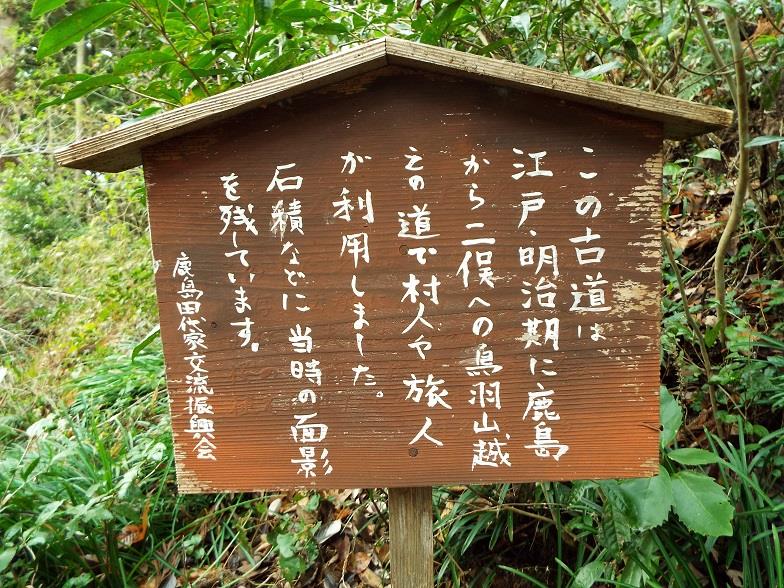 この古道は
江戸・明治期に鹿島
から二俣への鳥羽山越
えの道で村人や旅人
が利用しました。
石積などに当時の面影
を残しています。
鹿島田代家交流振興会